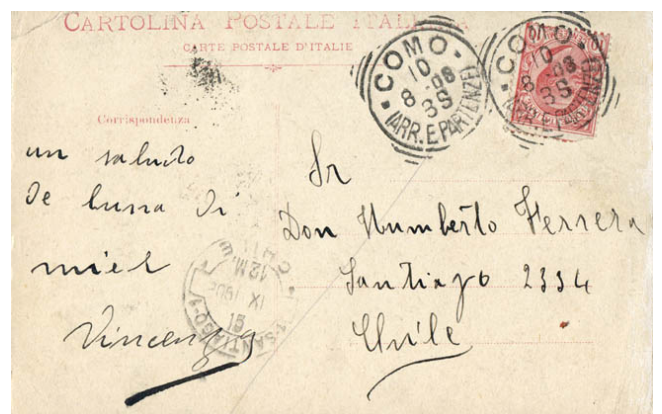 CARTOLINA POSTALE ITALIANA
CARTE POSTALE D'ITALIE
COMO
10
8 -08
3S
(ARR. E PARTENZE)
COMO
10
8 -08
3S
(ARR. E PARTENZE)
Corrispondenza
un saluto
de luna di
miel
Vincenzo
Sr
Don Humberto Ferrera
Santiago 2334
Chile
CHILE
12 M.
IX
15
SANTIAGO